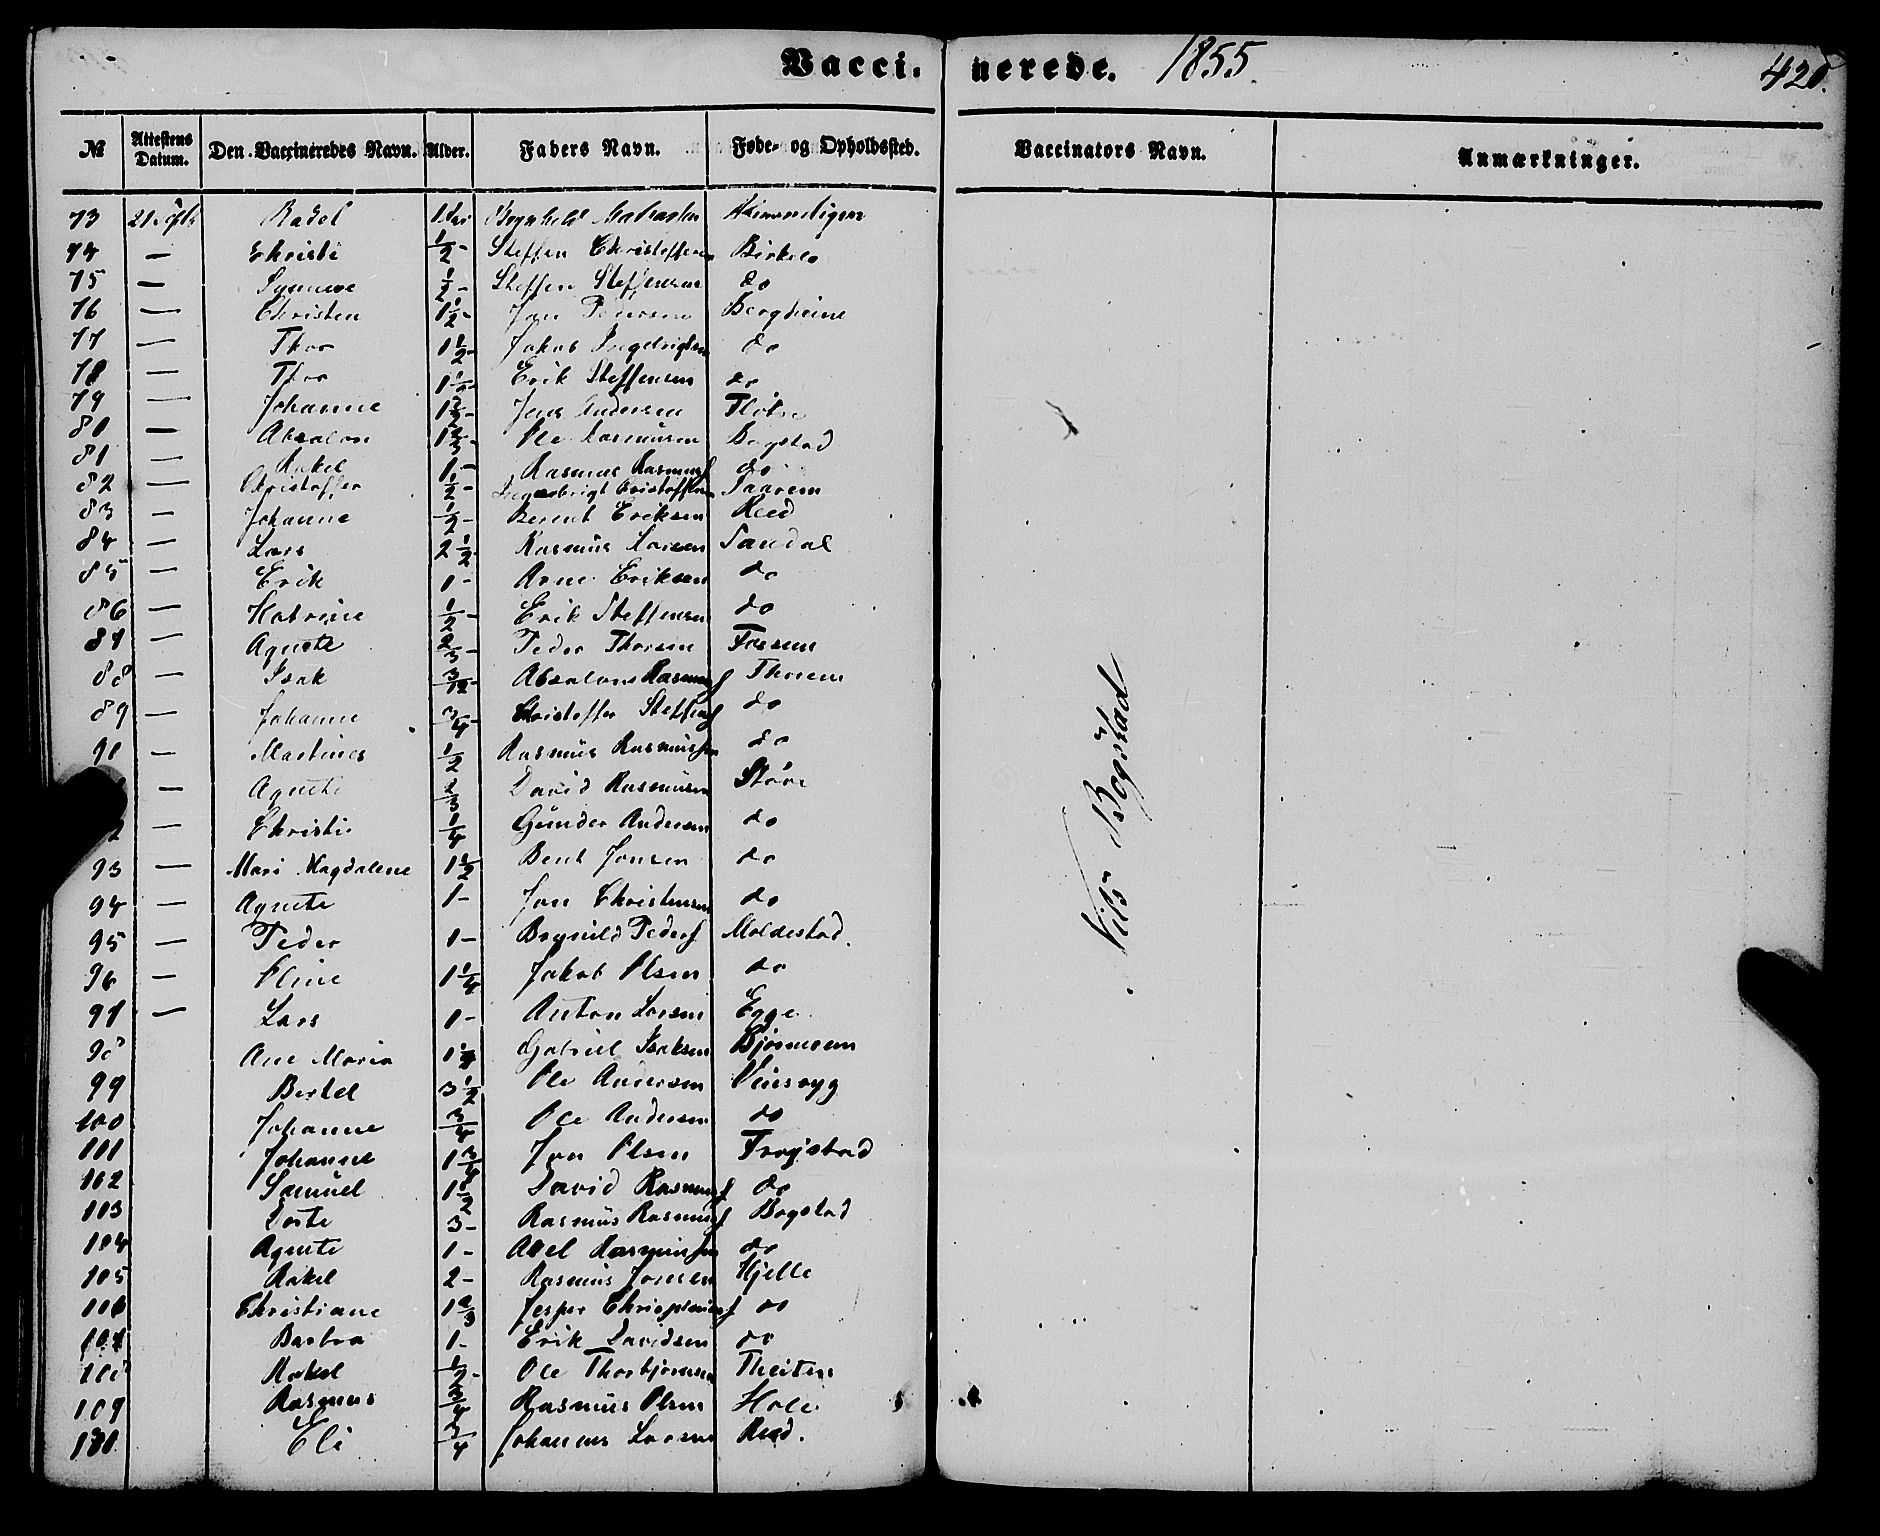 Vaccinerede. 1855. 420.
№ Attestens Datum. Den Vaccineredes Navn. Alder. Faders Navn. Føde- og Opholdssted. Vaccinators Navn. Anmærkninger.
73 21
74 — Christi 1/2 - Steffen Christoffersen Birkelo
75 — Synneve 1/2 - Steffen Steffensen do
76 — Christen 1 1/2 - Jon Bergheine
77 — Thor 1 1/2 - Jakob Ingebrigtsen do
78 — Thor 1 1/2 - Erik Steffensen do
79 — Johanne Jens Andersen
80 — Absalon 1 2/3 - Ole Rasmusen Bogstad
81 — Rakel 1 - Rasmus Rasmus do
82 — Christoffer 1/2 - Ingebrigt Cristoffersen Paarem
83 — Johanne 1/2 - Berent Eriksen Reed
84 — Lars 2 1/2 Rasmus Larsen Sandal
85 — Erik 1 - Arne Eriksen do
86 — Katrine 1/2 - Erik Steffensen do
87 — Agnete 2/3 - Peder Thorsen Fossem
88 — Isak 3/12 - Absalon Rasmus Thorem
89 — Johanne 3/4 - Cristoffer Steffens do
90 — Martines 1/2 Rasmus Rasmussen do
— Agnete 2/3 David Rasmusen Støve
2 — Christi 1/4 Gunder Andersen do
93 — Mari Magdalene 1 1/2 Bent Jonsen do
94 — Agnete 1 - Jon Christensen do
95 — Peder 1 - Brynild Peders Moldestad.
96 — Oline 1 1/4 Jakob Olsen do
97 — Lars 1 - Anton Larsen Egge
98 Ane Maria Gabriel Isaksen
99 Bertel 3 1/2 Ole Andersen
100 Johanne 3/4 Ole Andersen do
101 Johanne 1 3/4 Jon Olsen Frøistad
102 Samuel 1 1/2 David Rasmus do
103 Dorte 3 - Rasmus Rasmus Bogstad
104 Agnete 1 - Axel Rasmussen do
105 Rakel 2 - Rasmus Jonsen Hjelle
106 Christiane 1 2/3 Jesper do
107 Barbra 1 - Erik Davidsen do
108 Rakel 1/2 - Ole Thorbjørnsen Theiten
109 Rasmus 3/4 Rasmus Olsen Hole
110 Eli 3/4 Johannes Larsen Reed.
Nils Bogstad